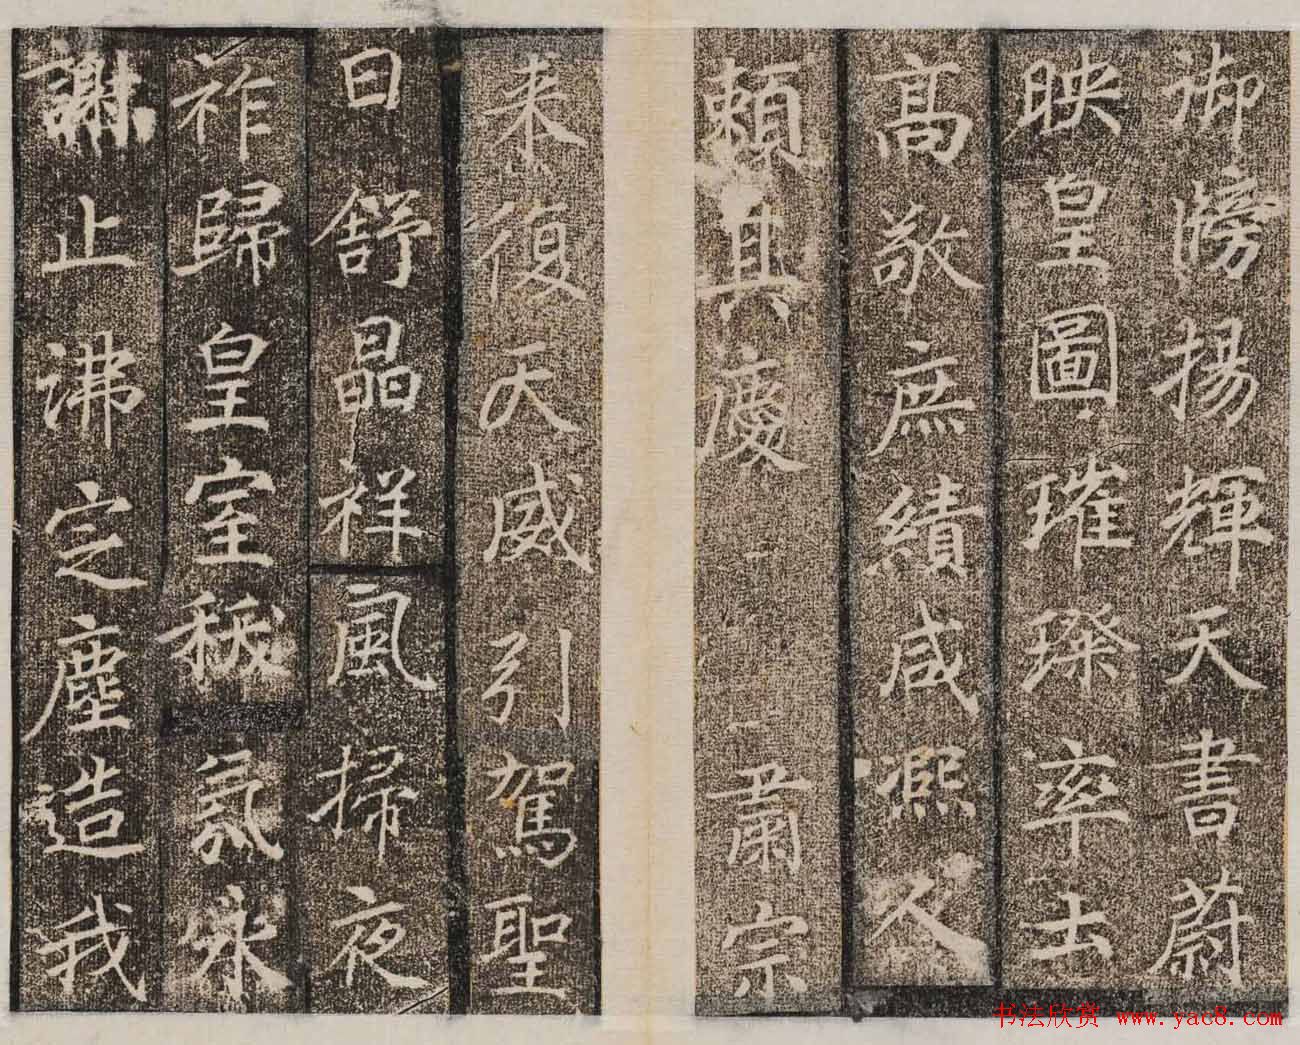 御牓揚輝天書蔚
映皇圖璀璨率土
高敬庶績咸熙人
頼其慶肅宗
来復天威引駕聖
日舒晶祥風掃夜
祚歸皇室祲氛永
謝止沸定塵造我
书法欣赏 www.yac8.com